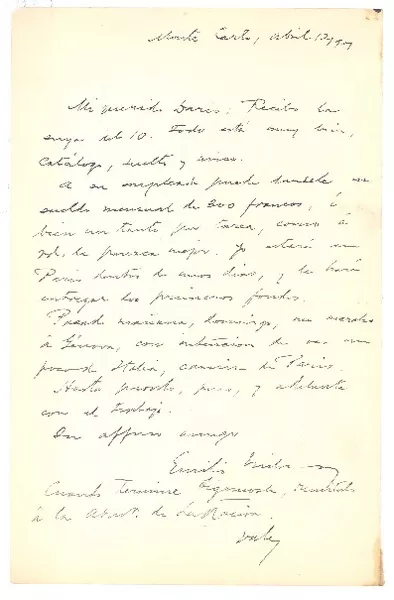 Monte Carlo, abril 12
Mi querido Darío: Recibo la
suya del 10. Todo está muy bien,
catálogo, suelto y
A su empleado puede dársele un
sueldo mensual de 300 francos, ó
bien un tanto por tarea, como á
Vd. le parezca mejor. Yo estaré en
París dentro de unos días, y le haré
entregar los primeros fondos.
Pasado mañana, domingo, me marcho
á Génova, con intención de ver un
poco de Italia, camino de París.
Hasta pronto, pues, y adelante
con el trabajo.
Su affmo amigo
Emilio
Cuando termine
á la de La Nación.
vale